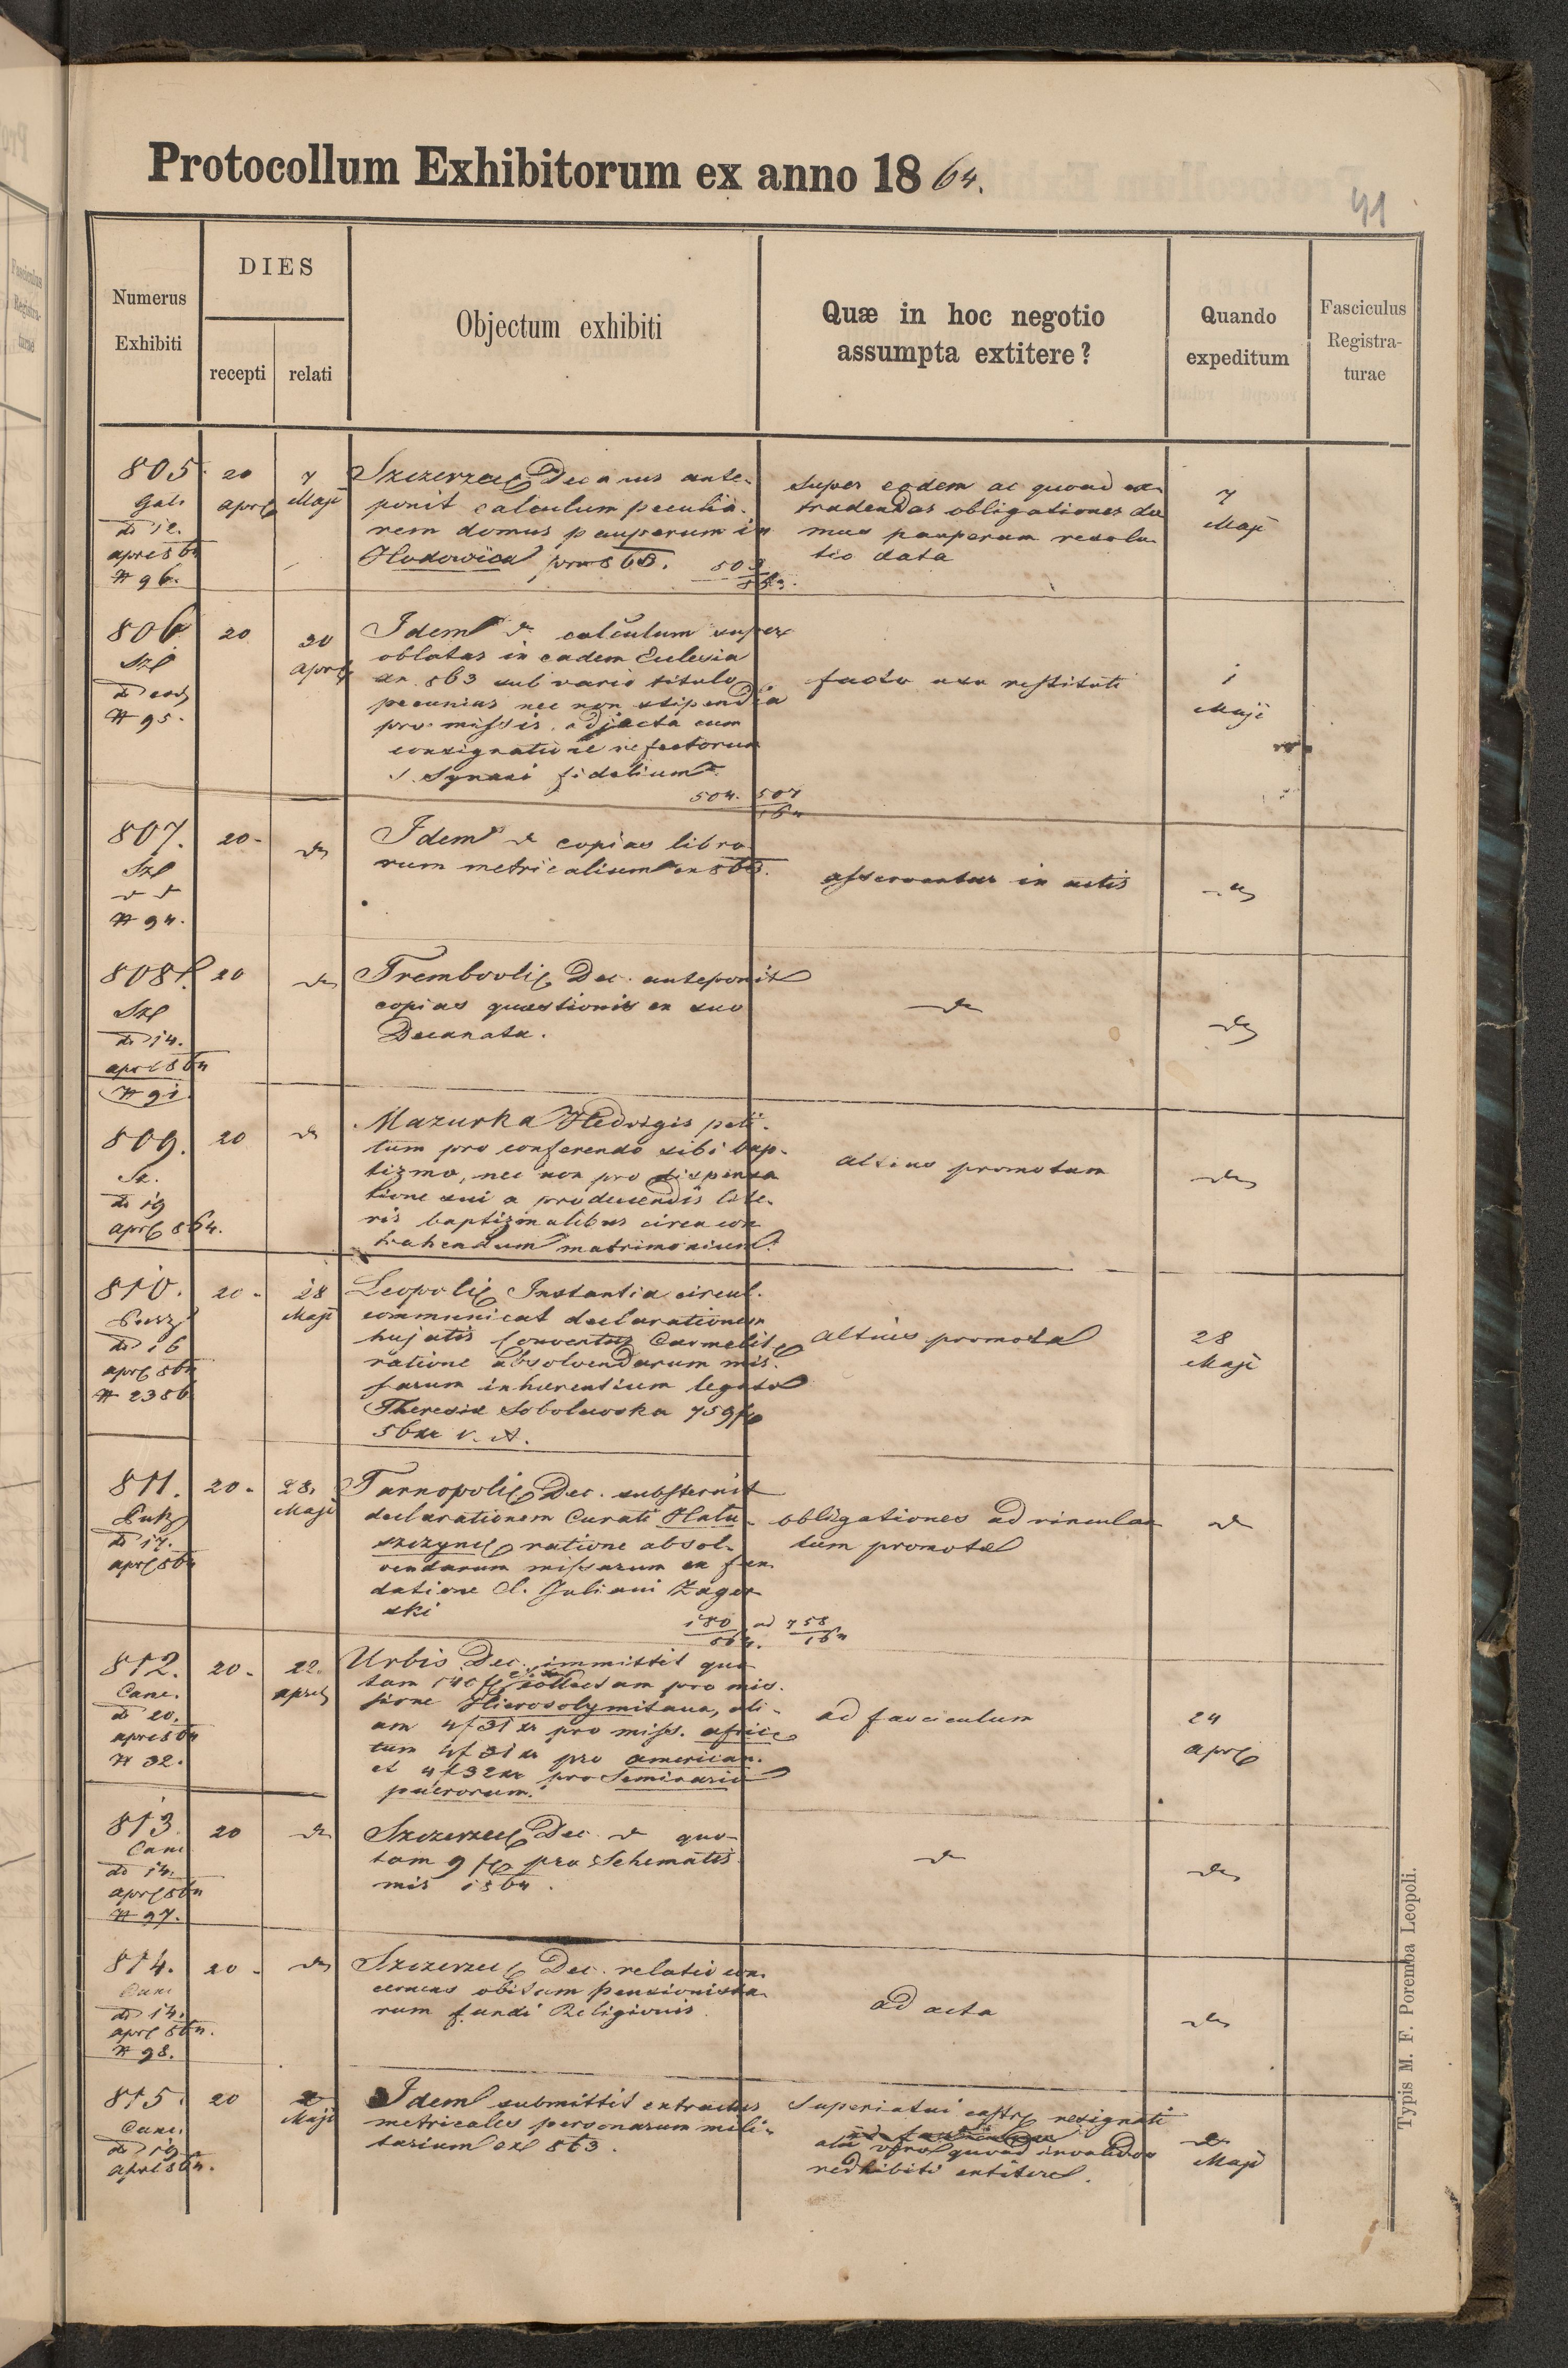 Protocollum Exhibitorum ex anno 1864.
41
Numerus Exhibiti
DIES
recepti relati
Objectum exhibiti
Quæ in hoc negotio assumpta extitere?
Quando expeditum
Fasciculus Registra-turae
805. 20 7
Apr Maji
12.
apr 864
# 96.
Szczerzec Decanus ante-
ponit calculum peculia-
rem domus pauperum in
Hodowica pro 863. 503
863.
super eodem ac quoad ex-
tradendas obligationes do-
mus pauperum resolu-
tio data
7
Maji
806 20 20
Apr
# 95.
Idem calculum super
oblatas in eadem Ecclesia
an. 863 sub vario titulo
pecunias nec non stipendia
pro missis, adjecta cum
consignatione refectorum
S. Synaxi fidelium
504. 507
164
facto usu restituti
1
Maji
807. 20-
# 94.
Idem copias libro-
rum metricalium ex 863.
asserventur in actis
808 20
14.
apr 864
# 91
Trembovl Dec. anteponit
copias quaestionis ex suo
Decanatu.
809. 20
19
apr 864.
Mazurka Hedvigis peti-
tum pro conferendo sibi bap-
tizmo, nec non pro dispensa
tione sui a producendis lite-
ris baptizmalibus circa con
trahendum matrimonium.
altius promotum
810. 20- 28
Maji
16
apr 864
# 2386
Leopoli Instantia circul.
communicat declarationem
hujatis Conventus Carmelit
ratione absolvendarum mis-
sarum inhaerentium legato
Theresia Sobolewska 759 f
56 xr v. A.
altius promota
28
Maji
811. 20- 28.
Maji
17.
apr 864
Tarnopoli Dec. substernit
declarationem Curati Hału-
szczync ratione absol-
vendarum missarum ex fun
datione Cl. Juliani Zagor
ski
180 ad 758
864. 164
obligationes ad vinculan
tum promotae
812. 20- 22.
Canc. apr
20.
apr 864
# 32.
Urbis Dec. immittit quo
tam 140 f collectam pro mis-
sione Hierosolymitana, ali-
am 4 f 31 xr pro miss. afric
tum 4 f 31 xr pro american.
et 4 f 32 xr pro Seminario
puerorum.
ad fasciculum
24
apr
813. 20
Canc
14.
apr 864
# 97.
Szczerzec Dec. quo-
tam 9 f pro Schematis
mis 1864.
814. 20-
Canc
14.
apr 864.
# 98.
Szczerzec Dec. relatio con
cernens obitum pensionista-
rum fundi Religionis.
ad acta
815. 20
Maji
Canc.
19
apr 864.
Idem submittit extractus
metricales personarum mili-
tarium ex 863.
Superiatui castr resignati
alii vero quoad invalidos
redhibiti extitere.
Maji
Typis M. F. Poremba Leopoli.